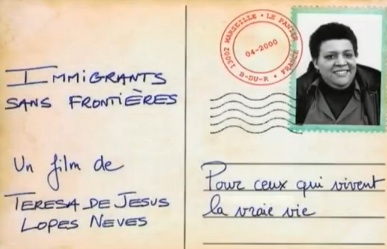 IMMIGRANTS
SANS FRONTIÈRES
Un film de
TERESA DE JESUS
LOPES NEVES
13002 MARSEILLE • LE PANIER
04-2000
B-DU-R • FRANCE
Pour ceux qui vivent
la vraie vie